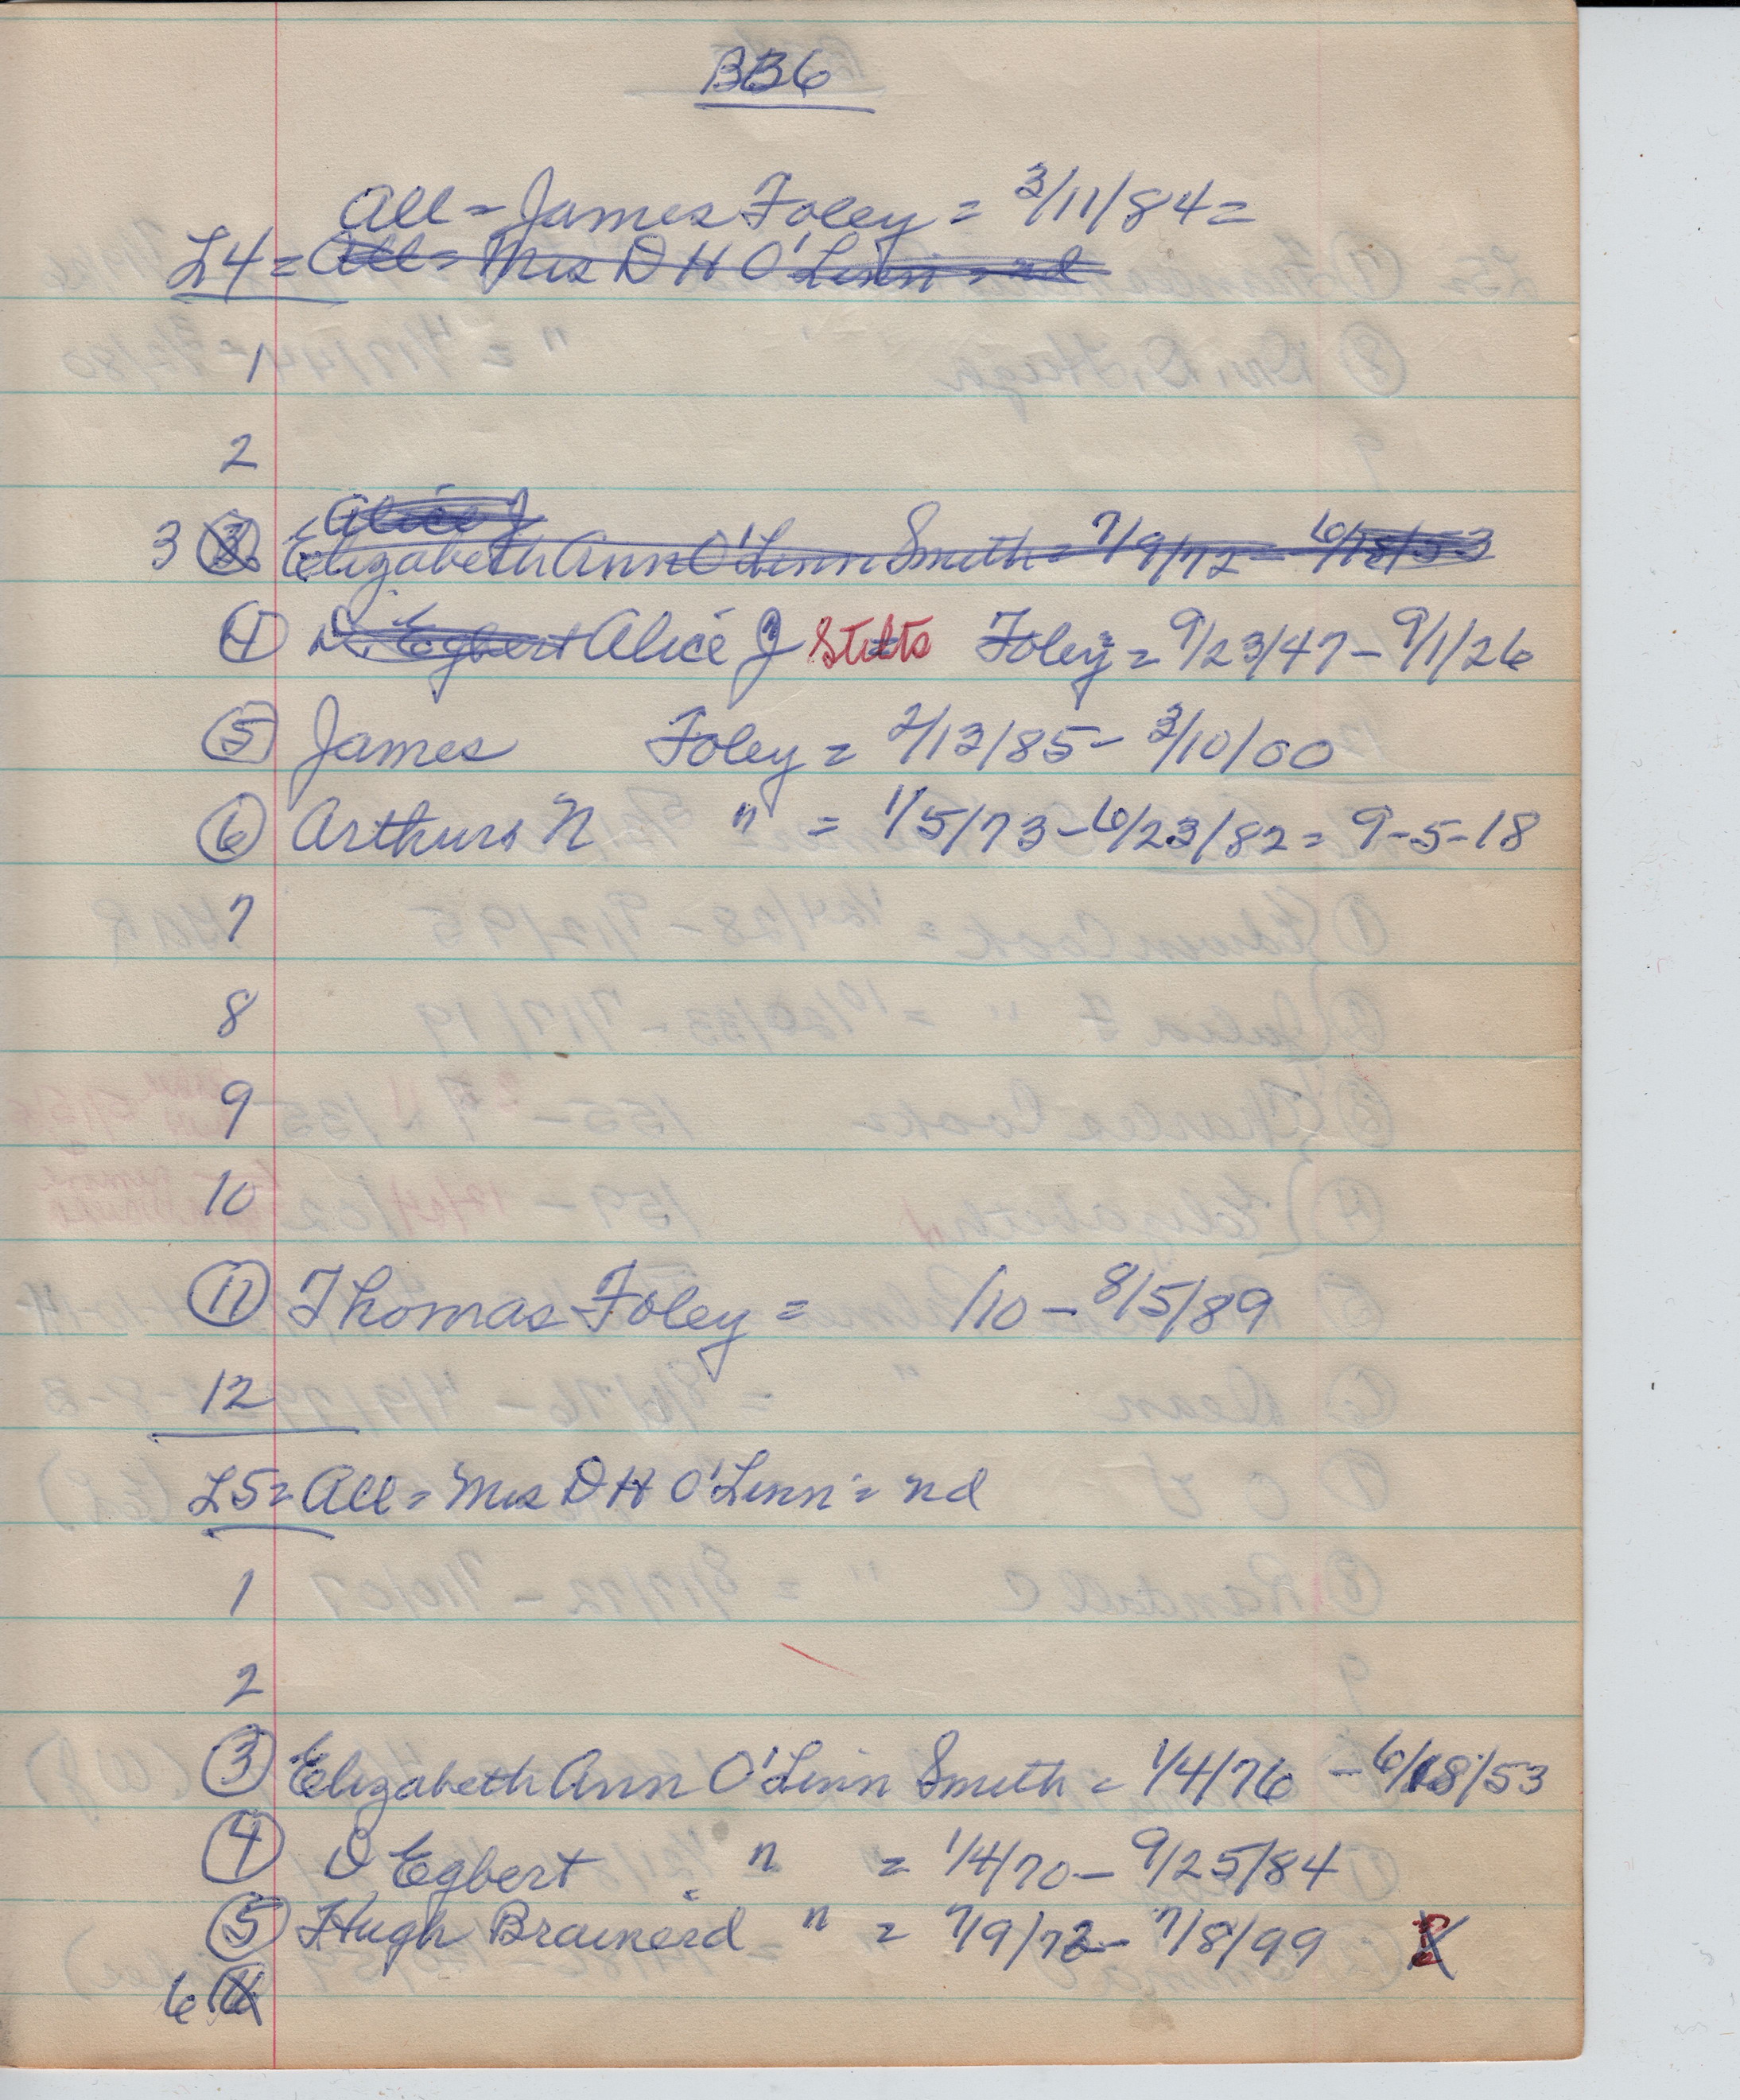 BB6
All = James Foley = 3/11/84 =
L4 = All = Mrs D H O'Linn = nd
1
2
Alice J
3 3 Elizabeth Ann O'Linn Smith = 7/9/72 - 6/18/53
4 D. Egbert Alice J Stilts Foley = 9/23/47 - 9/1/26
5 James Foley = 2/13/85 - 3/10/00
6 Arthur N " = 1/5/73 - 6/23/82 = 9-5-18
7
8
9
10
11 Thomas Foley = /10 - 8/5/89
12
L5 = All = Mrs D H O'Linn = nd
1
2
3 Elizabeth Ann O'Linn Smith = 1/4/76 - 6/18/53
4 D Egbert " = 1/4/70 - 9/25/84
5 Hugh Brainerd " = 7/9/72 - 7/8/99
6 6